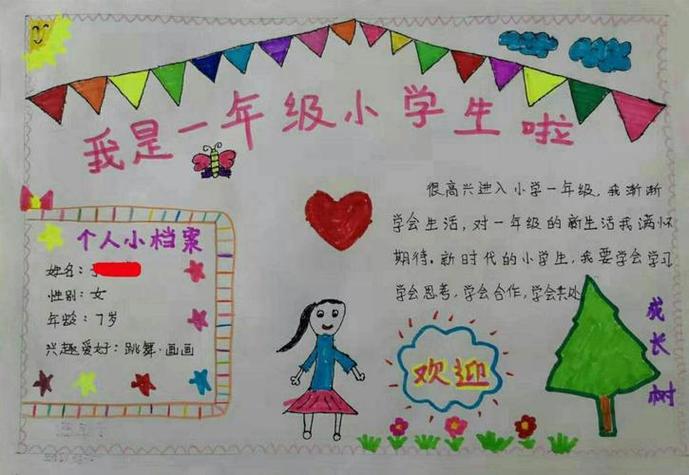 我是一年级小学生啦
个人小档案
姓名:
性别:女
年龄:7岁
兴趣爱好:跳舞·画画
很高兴进入小学一年级,我渐渐
学会生活,对一年级的新生活我满怀
期待。新时代的小学生,我要学会学习
学会思考,学会合作,学会共处
欢迎
成长树